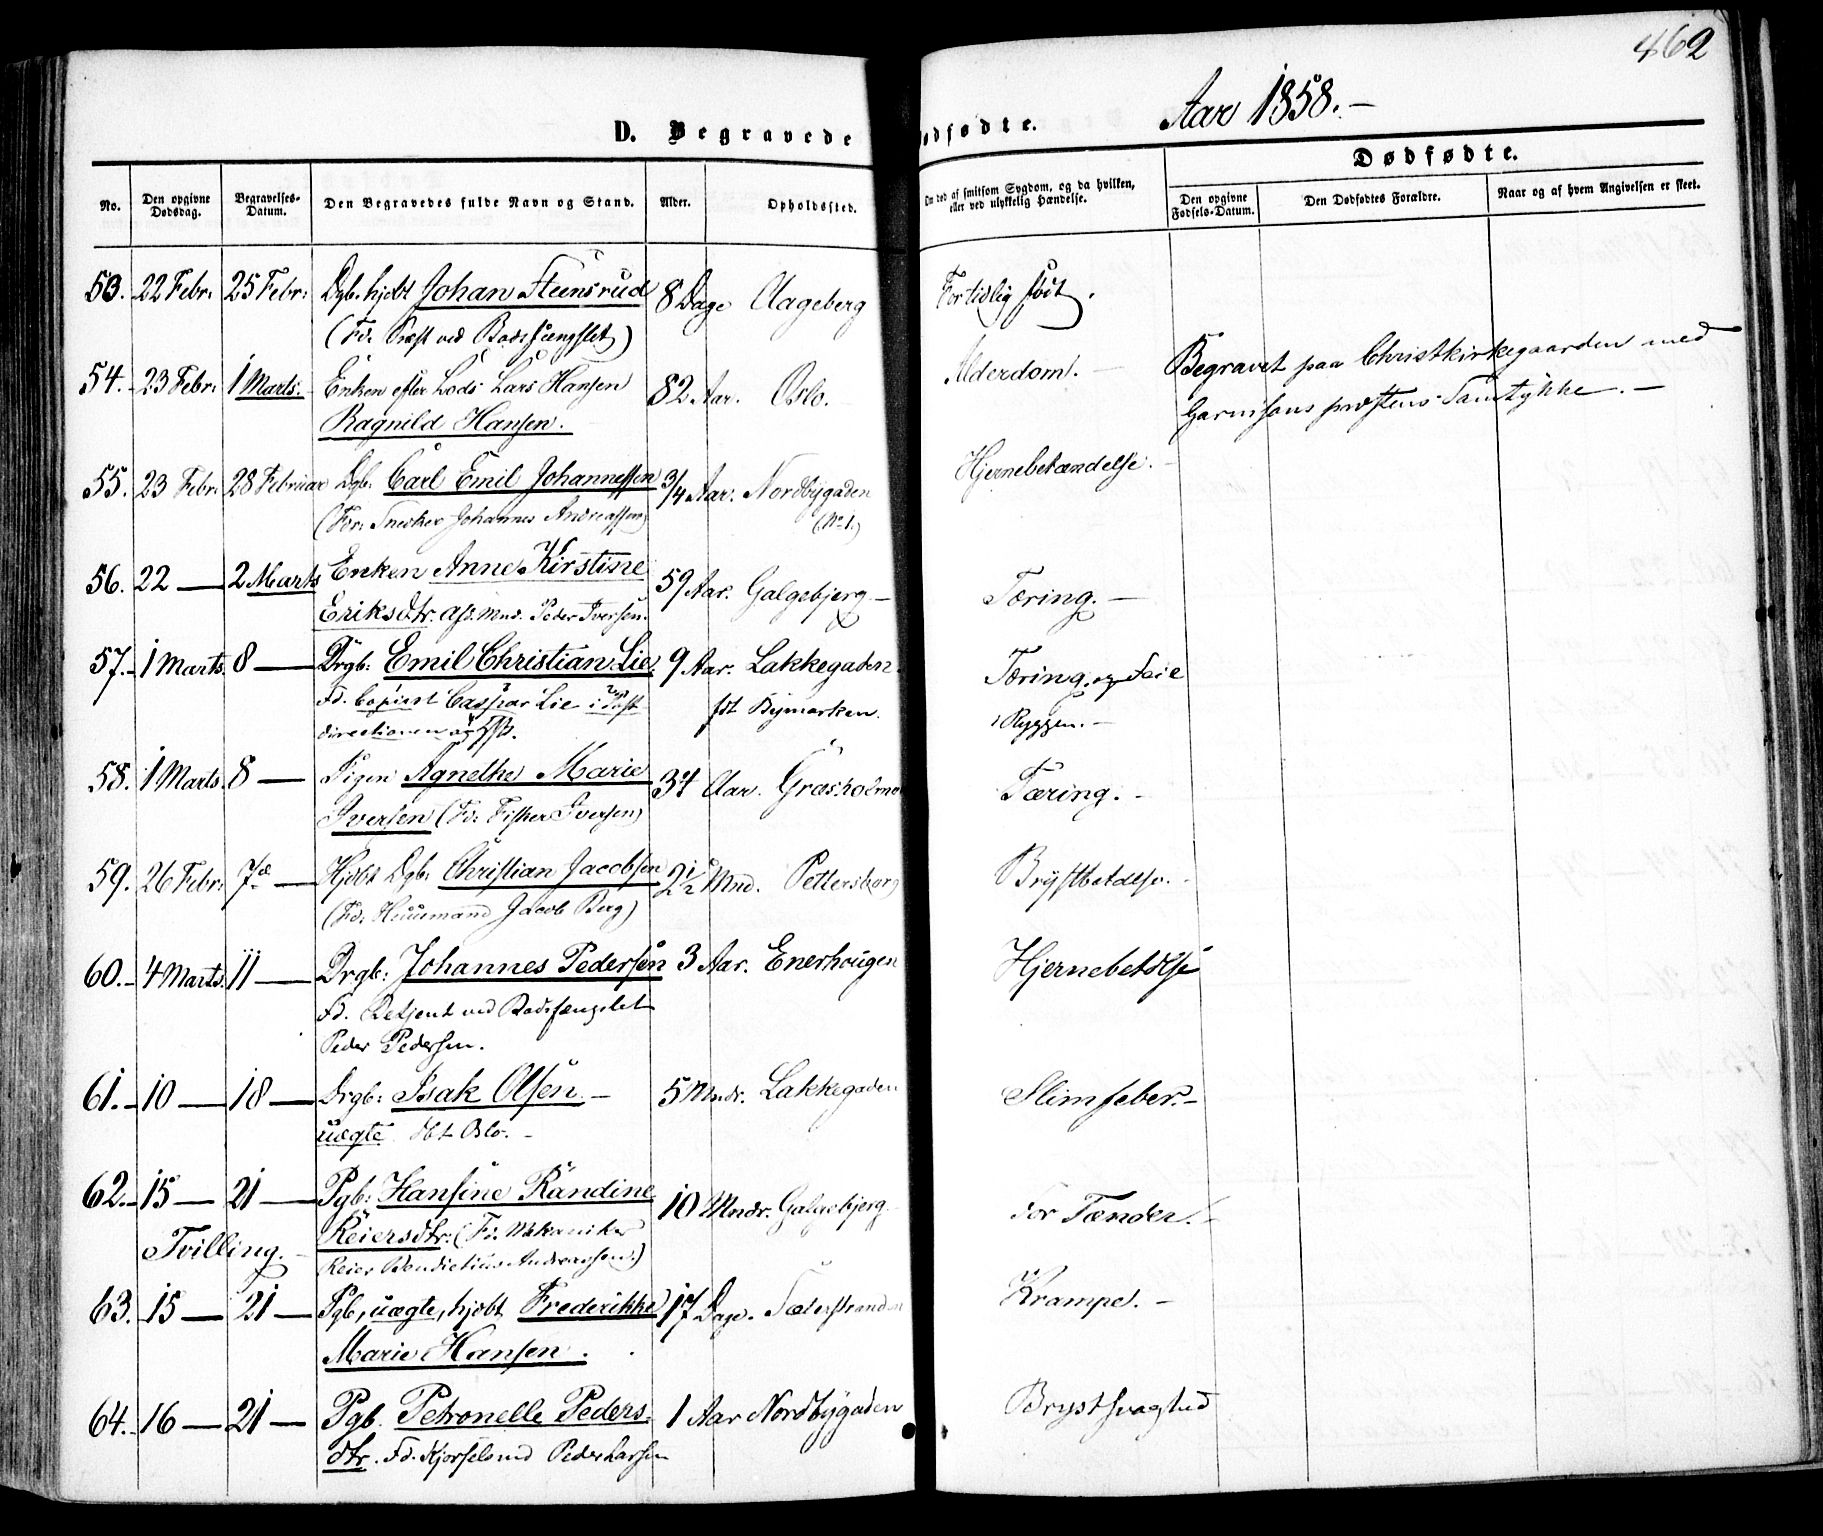 462
Aar 1858.-
D. Begravede
dfødte.
Dødfødte.
No.
Den opgivne Dødsdag.
Begravelses-Datum.
Den Begravedes fulde Navn og Stand.
Alder.
Opholdssted.
Om død af smitsom Sygdom, og da hvilken, eller ved ulykkelig Hændelse.
Den opgivne Fødsels-Datum.
Den Dødfødtes Forældre.
Naar og af hvem Angivelsen er skeet.
53. 22 Febr. 25 Febr. Dgb. hjdbt Johan Steensrud 8 Dage Aageberg Fortidlig født.
(Fd. ved Bodsfængslet)
54. 23 Febr. 1 Marts. Enken efter Lods Lars Hansen 82 Aar. Oslo. Alderdom. Begravet paa Christkirkegaarden med
Ragnild Hansen. Garnisonspræstens Samtykke. -
55. 23 Febr. 28 Februar Dgb. Carl Emil Johannessen 3/4 Aar. Nordbygaden Hjernebetændelse. -
(Fdr. Snedker Johannes Andreassen) (No 1.)
56. 22 — 2 Marts Enken Anne Kirstine 59 Aar. Galgebjerg - Tæring. -
Eriksdtr. afd. Mnd. Peder Iversen.
57. 1 Marts. 8 — Drgb: Emil Christian Lie 9 Aar. Lakkegaden. Tæring og Feil
Fd. Copiist Caspar Lie i Post fdt Bymarken. i Ryggen. -
directionen og
58. 1 Marts. 8 — Pigen Agnethe Marie 34 Aar. Græsholmen Tæring. -
Iversen (Fd: Fisker Iversen)
59. 26 Febr. 7de — Hjdbt Dgb. Christian Jacobsen 2 1/2 Mnd. Pettersborg Brystbetdlse. -
(Fd. Huusmand Jacob Berg)
60. 4 Marts. 11 — Drgb: Johannes Pedersen 3 Aar. Enerhougen Hjernebetdlse
Fd. Betjent ved Bodsfængslet
Peder Pedersen.
61. 10 — 18 — Drgb: Isak Olsen. - 5 Mndr. Lakkegaden Slimfeber. -
uægte dbt Oslo. -
62. 15 — 21 — Pgb: Hansine Randine 10 Mndr. Galgebjerg. For Tænder. -
Tvilling. Reiersdtr: (Fd. Mekaniker
Reier Bendictius Andreassen.)
63. 15 — 21 — Pgb, uægte, hjdbt Frederikke 17 Dage. Sæterstranden Krampe. -
Marie Hansen.
64. 16 — 21 — Pgb. Petronelle Peders- 1 Aar Nordbygaden Brystsvaghed
dtr. Fd. Kjørselsmd Peder Larsen